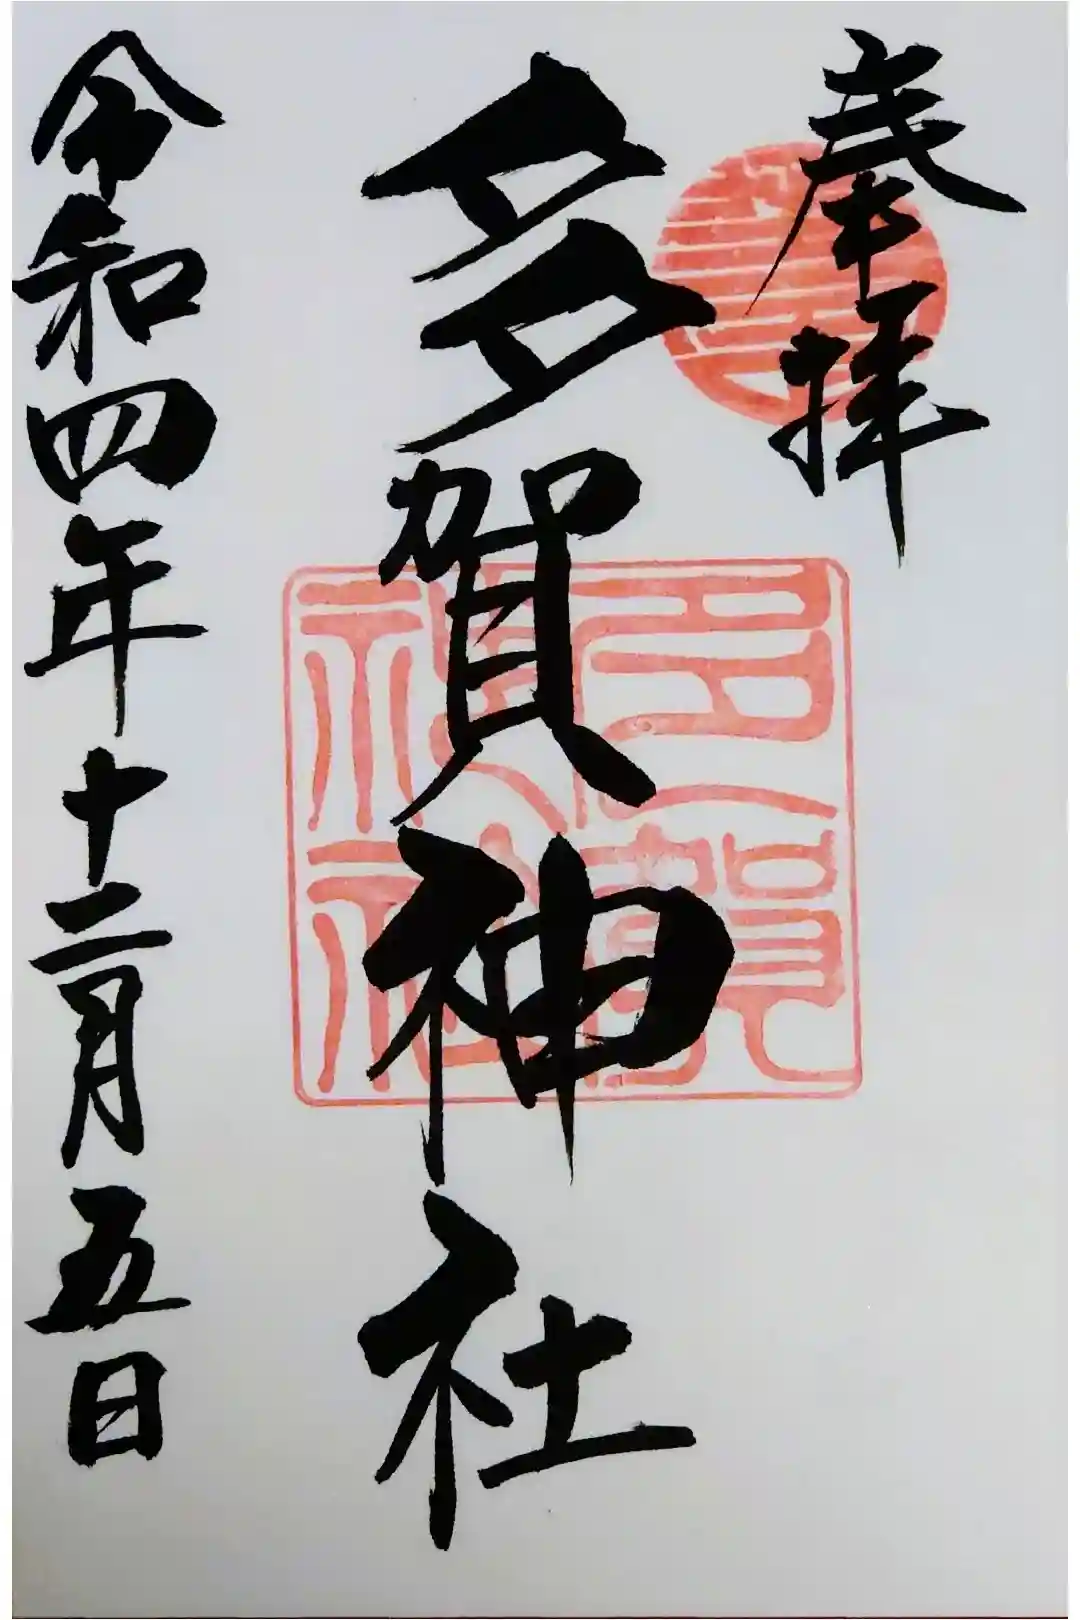 奉拝
多賀神社
令和四年十二月五日
多賀
神社